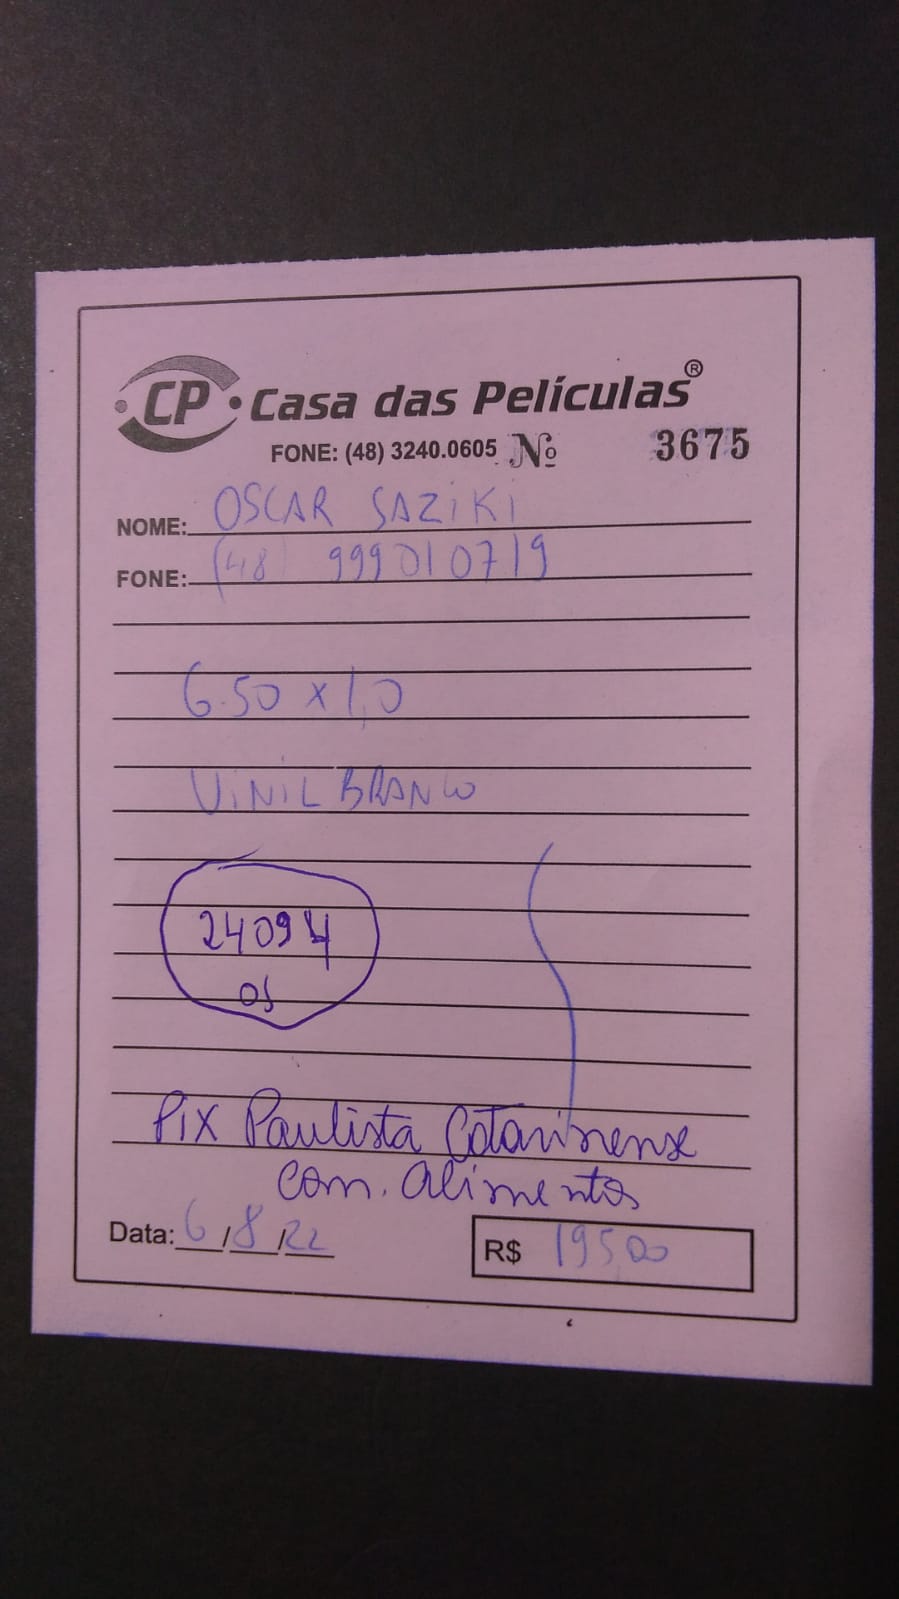 CP Casa das Películas®
FONE: (48) 3240.0605 Nº 3675
NOME: OSCAR SAZIKI
FONE: (48) 999010719
6.50 x 1,0
VINIL BRANCO
24094
OS
Pix Paulista Catarinense
Com. Alimentos
Data: 6/8/22 R$ 195,00